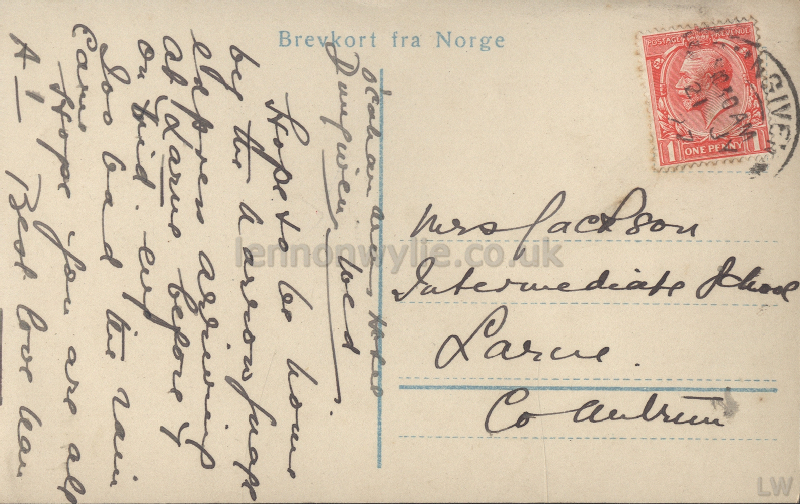 Brevkort fra Norge
O'Cahan Arms Hotel
Dungiven Wed
Hope to be home
by the
express arriving
at Larne before 7
on
Too bad the rain
Came
Hope you are all
A I Best love
Mrs Jackson
Intermediate School
Larne.
Co Antrim
POSTAGE REVENUE
1 ONE PENNY 1
DUNGIVEN
10 AM
21 JY
27
lennonwylie.co.uk
LW